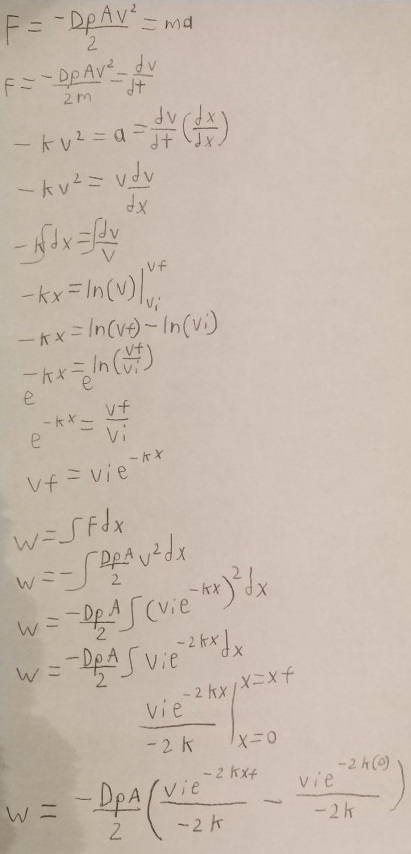 F = -DρAv²/2 = ma
F = -DρAv²/2m = dv/dt
-kv² = a = dv/dt (dx/dx)
-kv² = vdv/dx
-k∫dx = ∫dv/v
-kx = ln(v)|vf vi
-kx = ln(vf) - ln(vi)
e^-kx = e^ln(vf/vi)
e^-kx = vf/vi
vf = vie^-kx
w = ∫Fdx
w = -∫DρA/2 v²dx
w = -DρA/2 ∫(vie^-kx)²dx
w = -DρA/2 ∫vie^-2kx dx
vie^-2kx/-2k |x=xf x=0
w = -DρA/2 (vie^-2kxf/-2k - vie^-2k(0)/-2k)